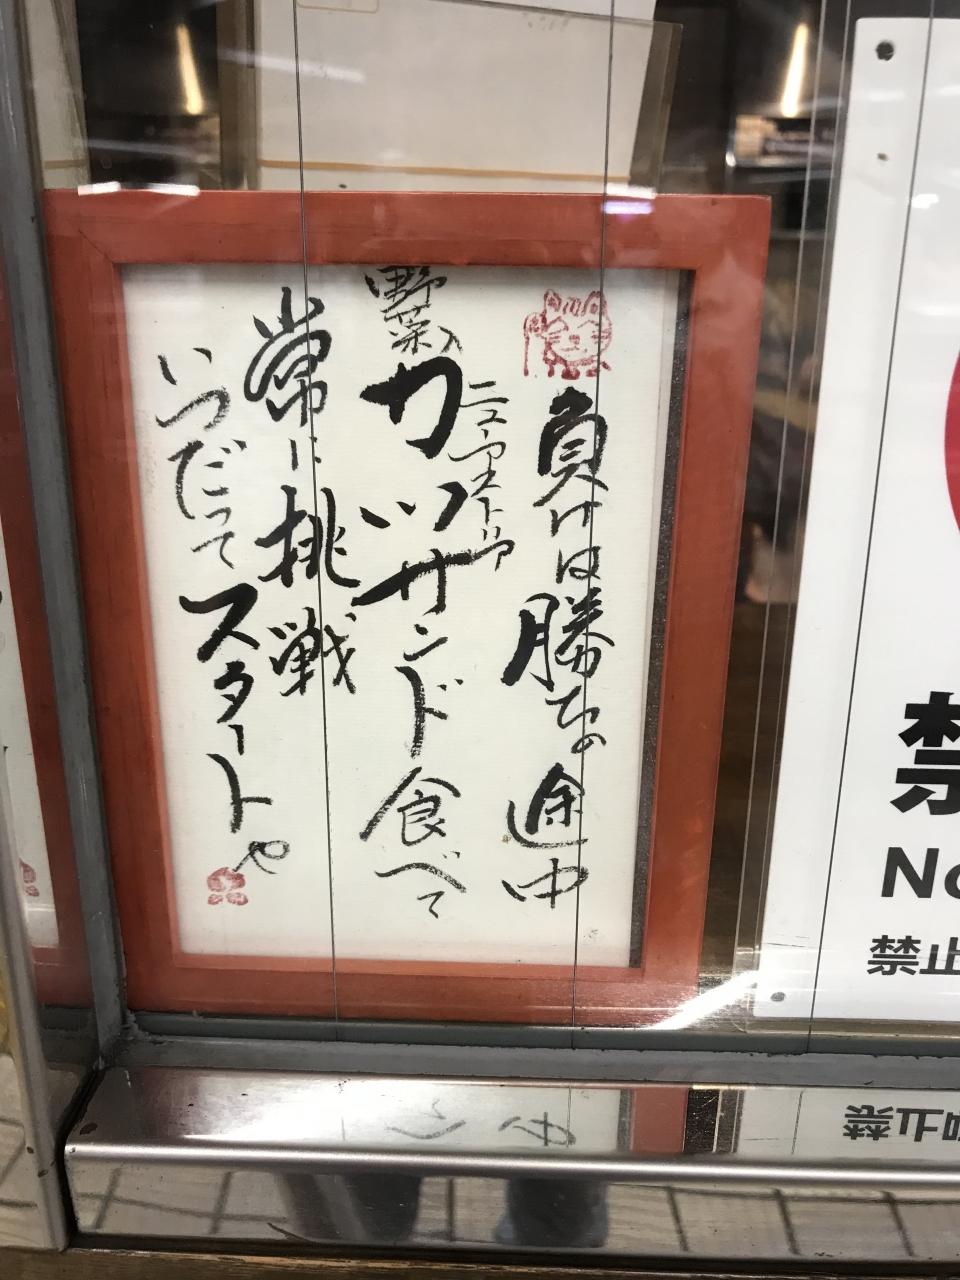 負けは勝ちの途中
ニューアストリア
野菜入カツサンド食べて
常に挑戦
いつだってスタートや
禁
No
禁止